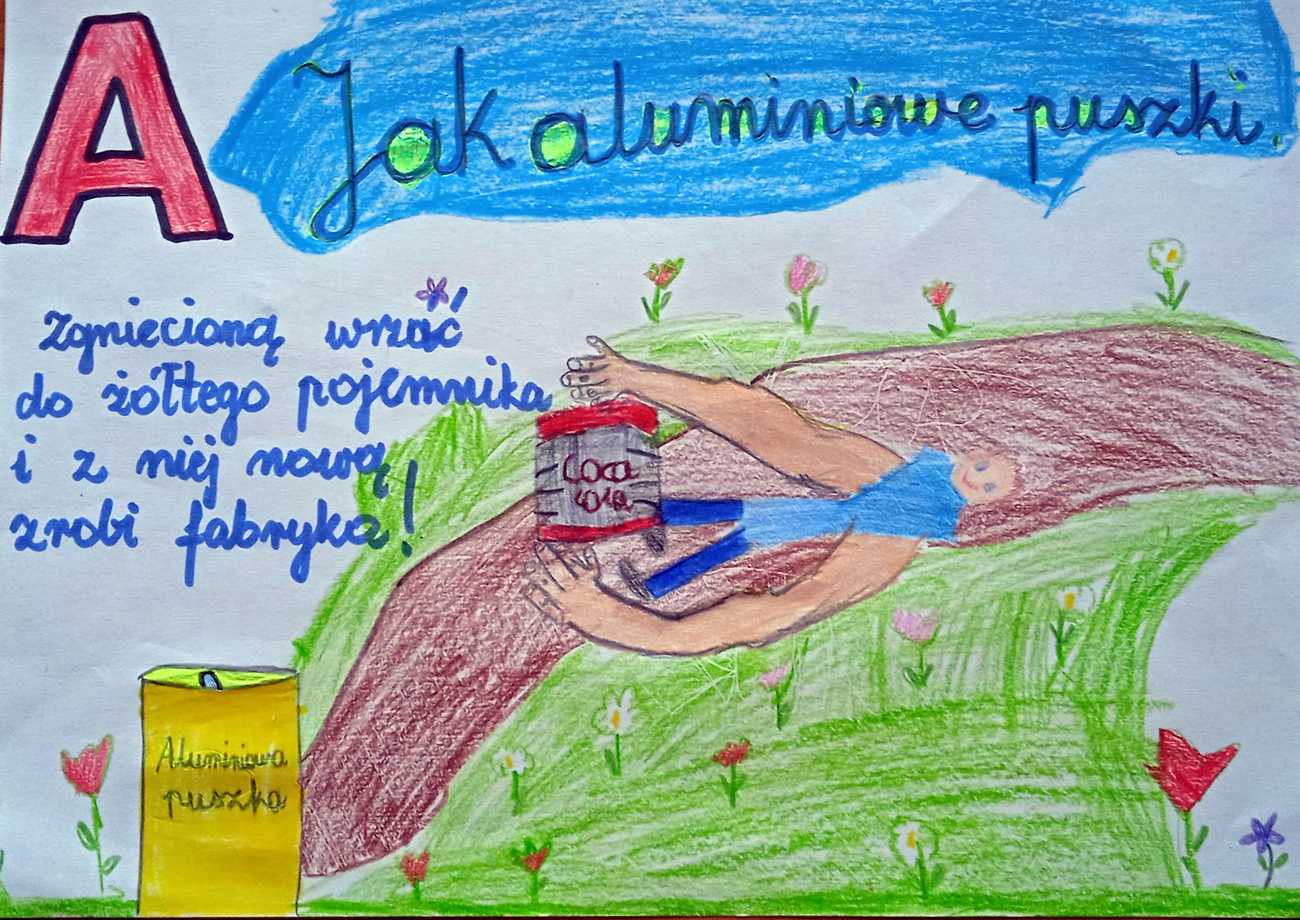 A
Jak aluminiowe puszki.
Zgniecioną wrzuć
do żółtego pojemnika
i z niej nową
zrobi fabryka!
Coca
cola
Aluminiowa
puszka